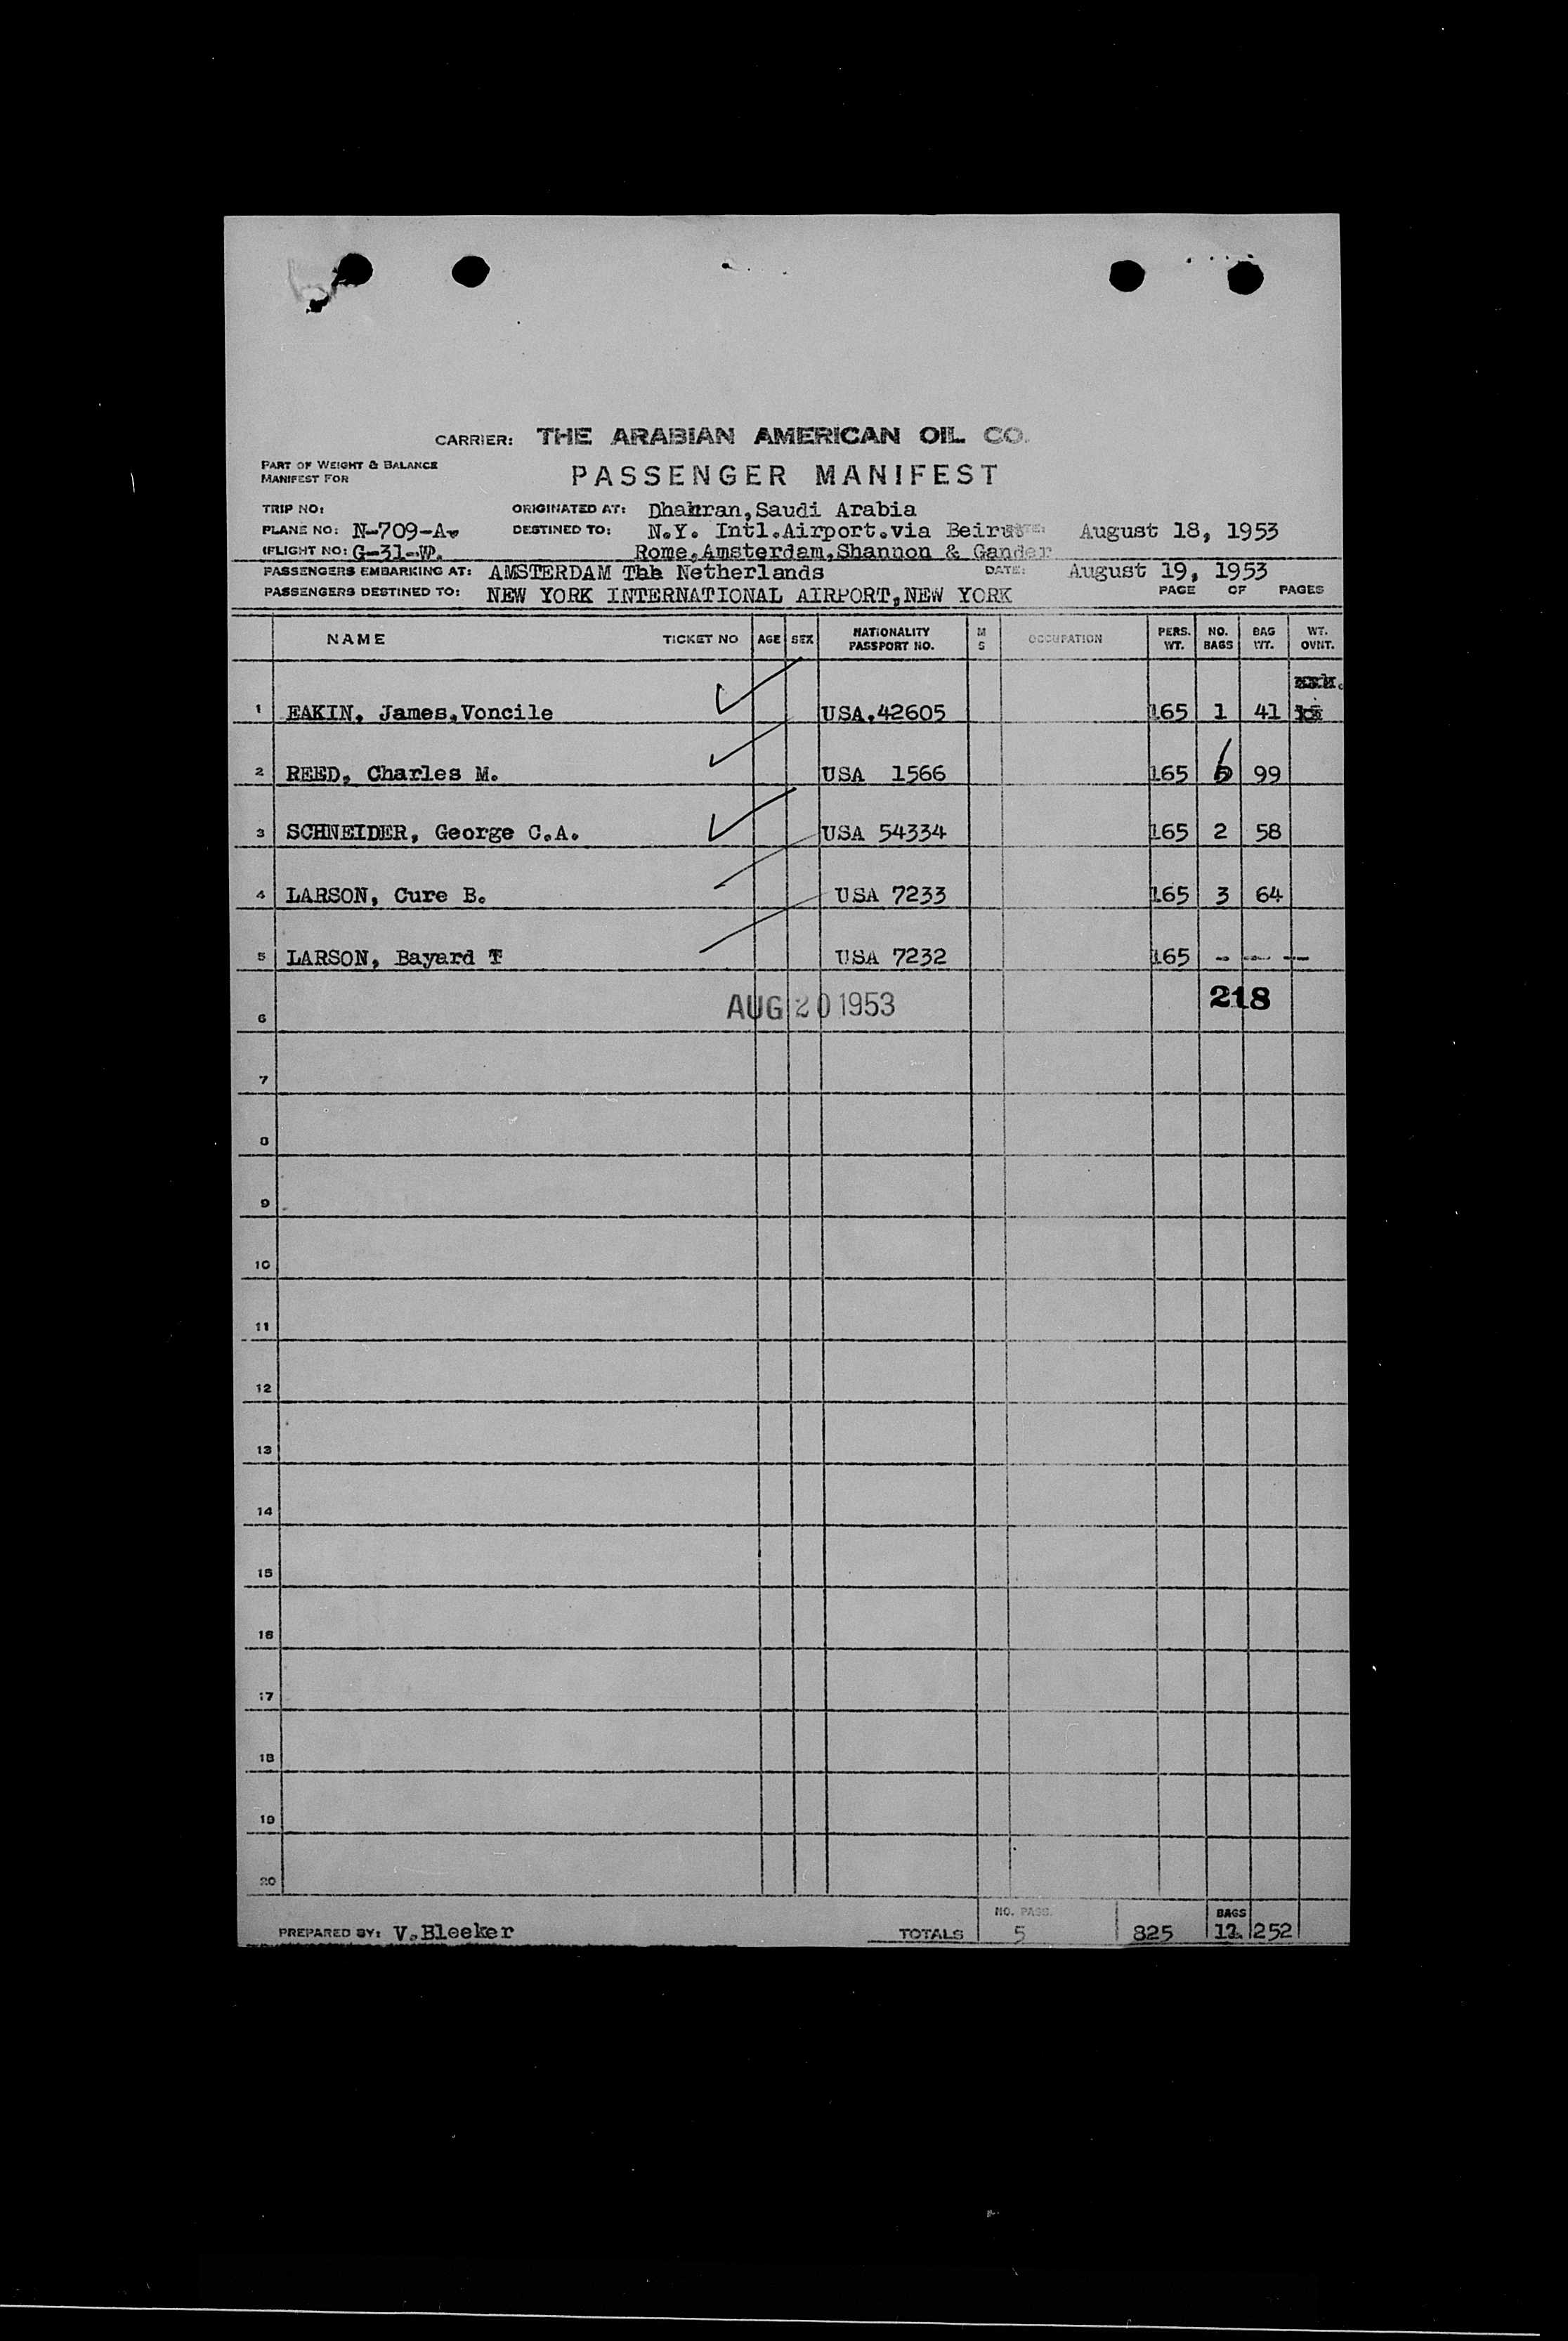 CARRIER: THE ARABIAN AMERICAN OIL CO.
PART OF WEIGHT & BALANCE
MANIFEST FOR
PASSENGER MANIFEST
TRIP NO: ORIGINATED AT: Dhahran,Saudi Arabia
PLANE NO: N-709-A. DESTINED TO: N.Y. Intl.Airport.via Beirut DATE: August 18, 1953
(FLIGHT NO: G-31-W. Rome,Amsterdam,Shannon & Gander
PASSENGERS EMBARKING AT: AMSTERDAM The Netherlands DATE: August 19, 1953
PASSENGERS DESTINED TO: NEW YORK INTERNATIONAL AIRPORT,NEW YORK PAGE OF PAGES
NAME TICKET NO AGE SEX NATIONALITY PASSPORT NO. M S OCCUPATION PERS. WT. NO. BAGS BAG WT. WT. OVNT.
1 EAKIN, James,Voncile USA.42605 165 1 41
2 REED, Charles M. USA 1566 165 6 99
3 SCHNEIDER, George C.A. USA 54334 165 2 58
4 LARSON, Cure B. USA 7233 165 3 64
5 LARSON, Bayard T USA 7232 165 - - -
6 AUG 20 1953 218
7
8
9
10
11
12
13
14
15
16
17
18
19
20
NO. PASS. BAGS
PREPARED BY: V.Bleeker TOTALS 5 825 12. 252